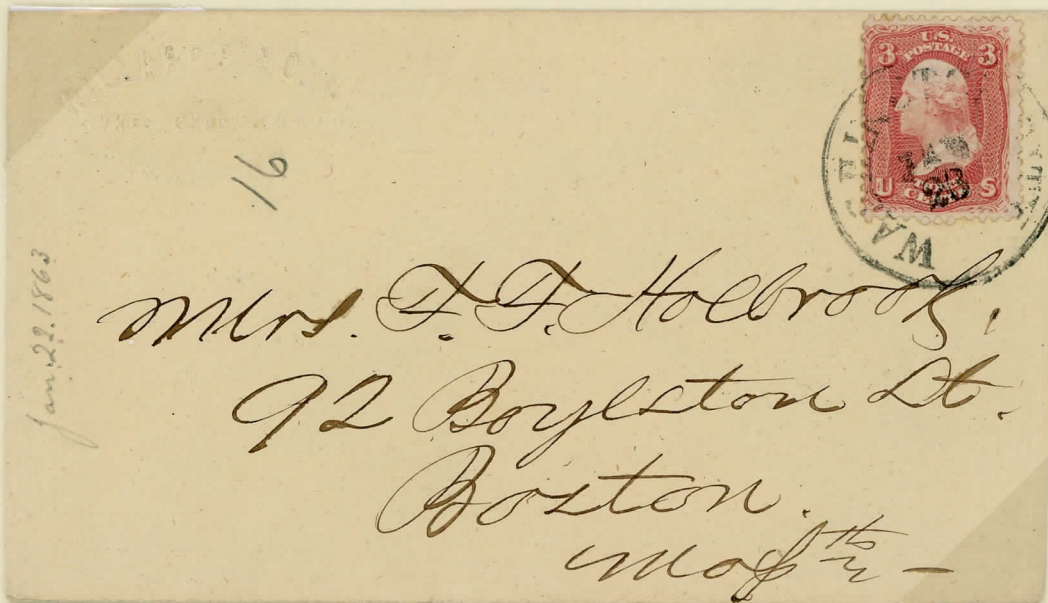 16
Jan. 22. 1863
U.S.
POSTAGE
3 3
U S
WASHINGTON
JAN
Mrs. F. F. Holbrook,
92 Boylston St.
Boston.
Mass tts